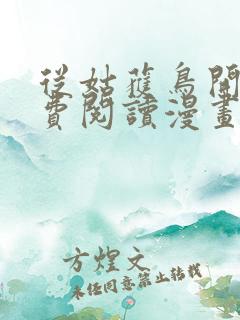 從姑蘇鳥開
費閱讀漫畫
方煌文
未經同意禁止轉載